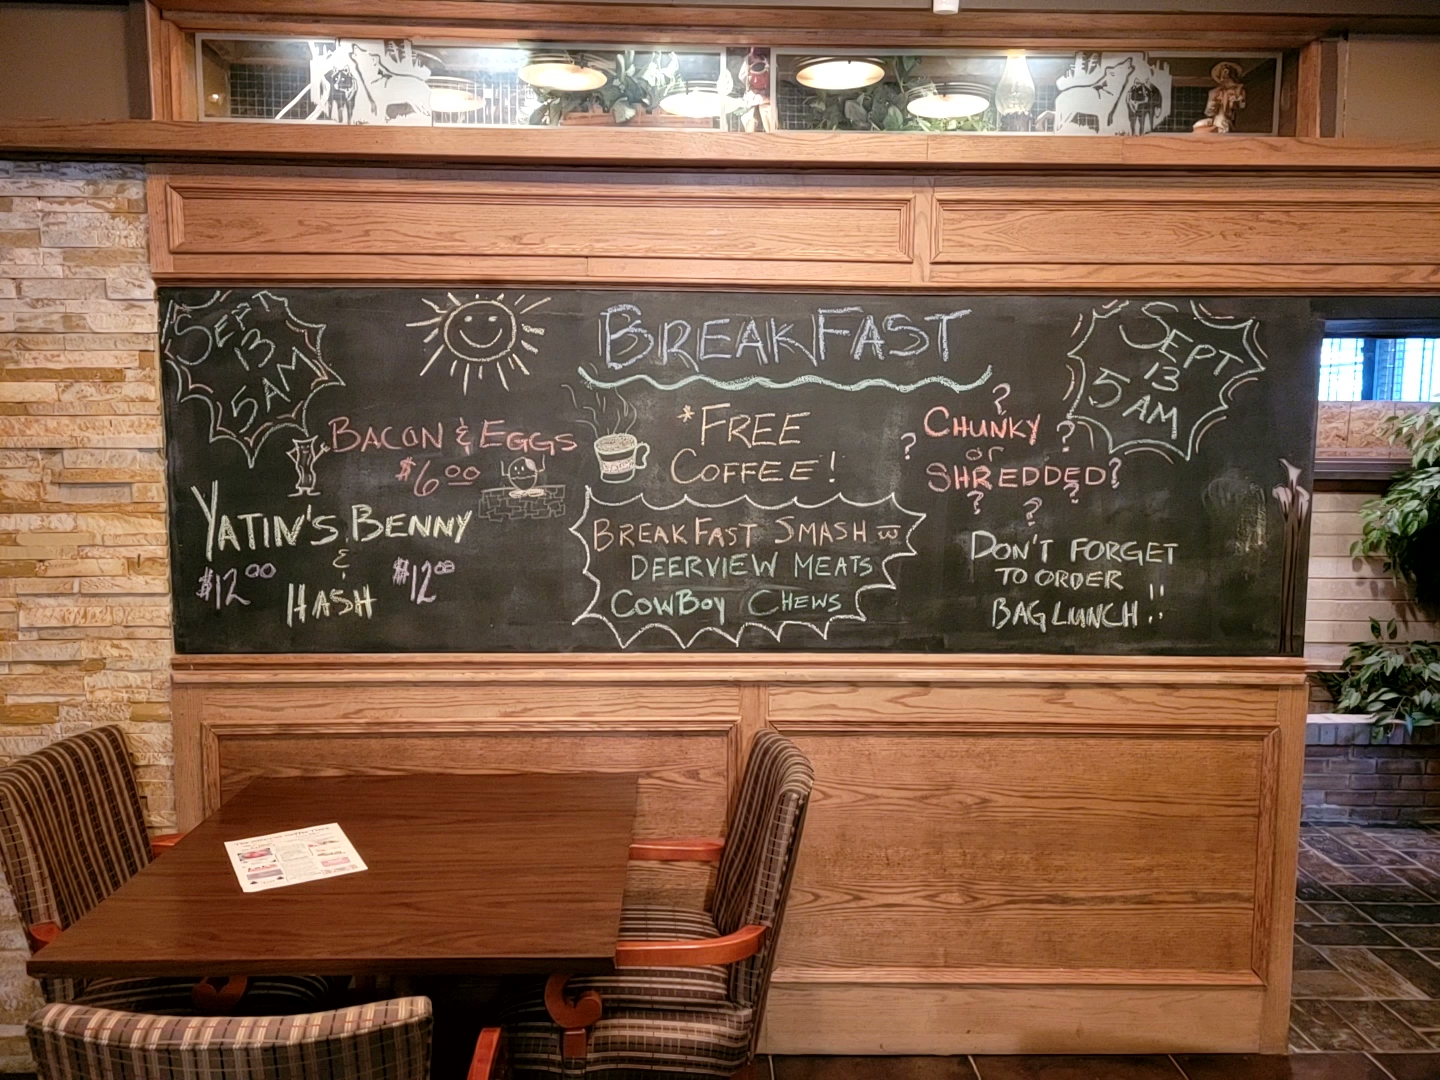 SEPT
13
5AM
BREAKFAST
SEPT
13
5 AM
BACON & EGGS
$6.00
YATIN'S BENNY
&
HASH
$12.00
$12.00
*FREE
COFFEE!
BREAKFAST SMASH
DEERVIEW MEATS
COWBOY CHEWS
? CHUNKY ?
? or
SHREDDED?
? ? ?
DON'T FORGET
TO ORDER
BAG LUNCH!!